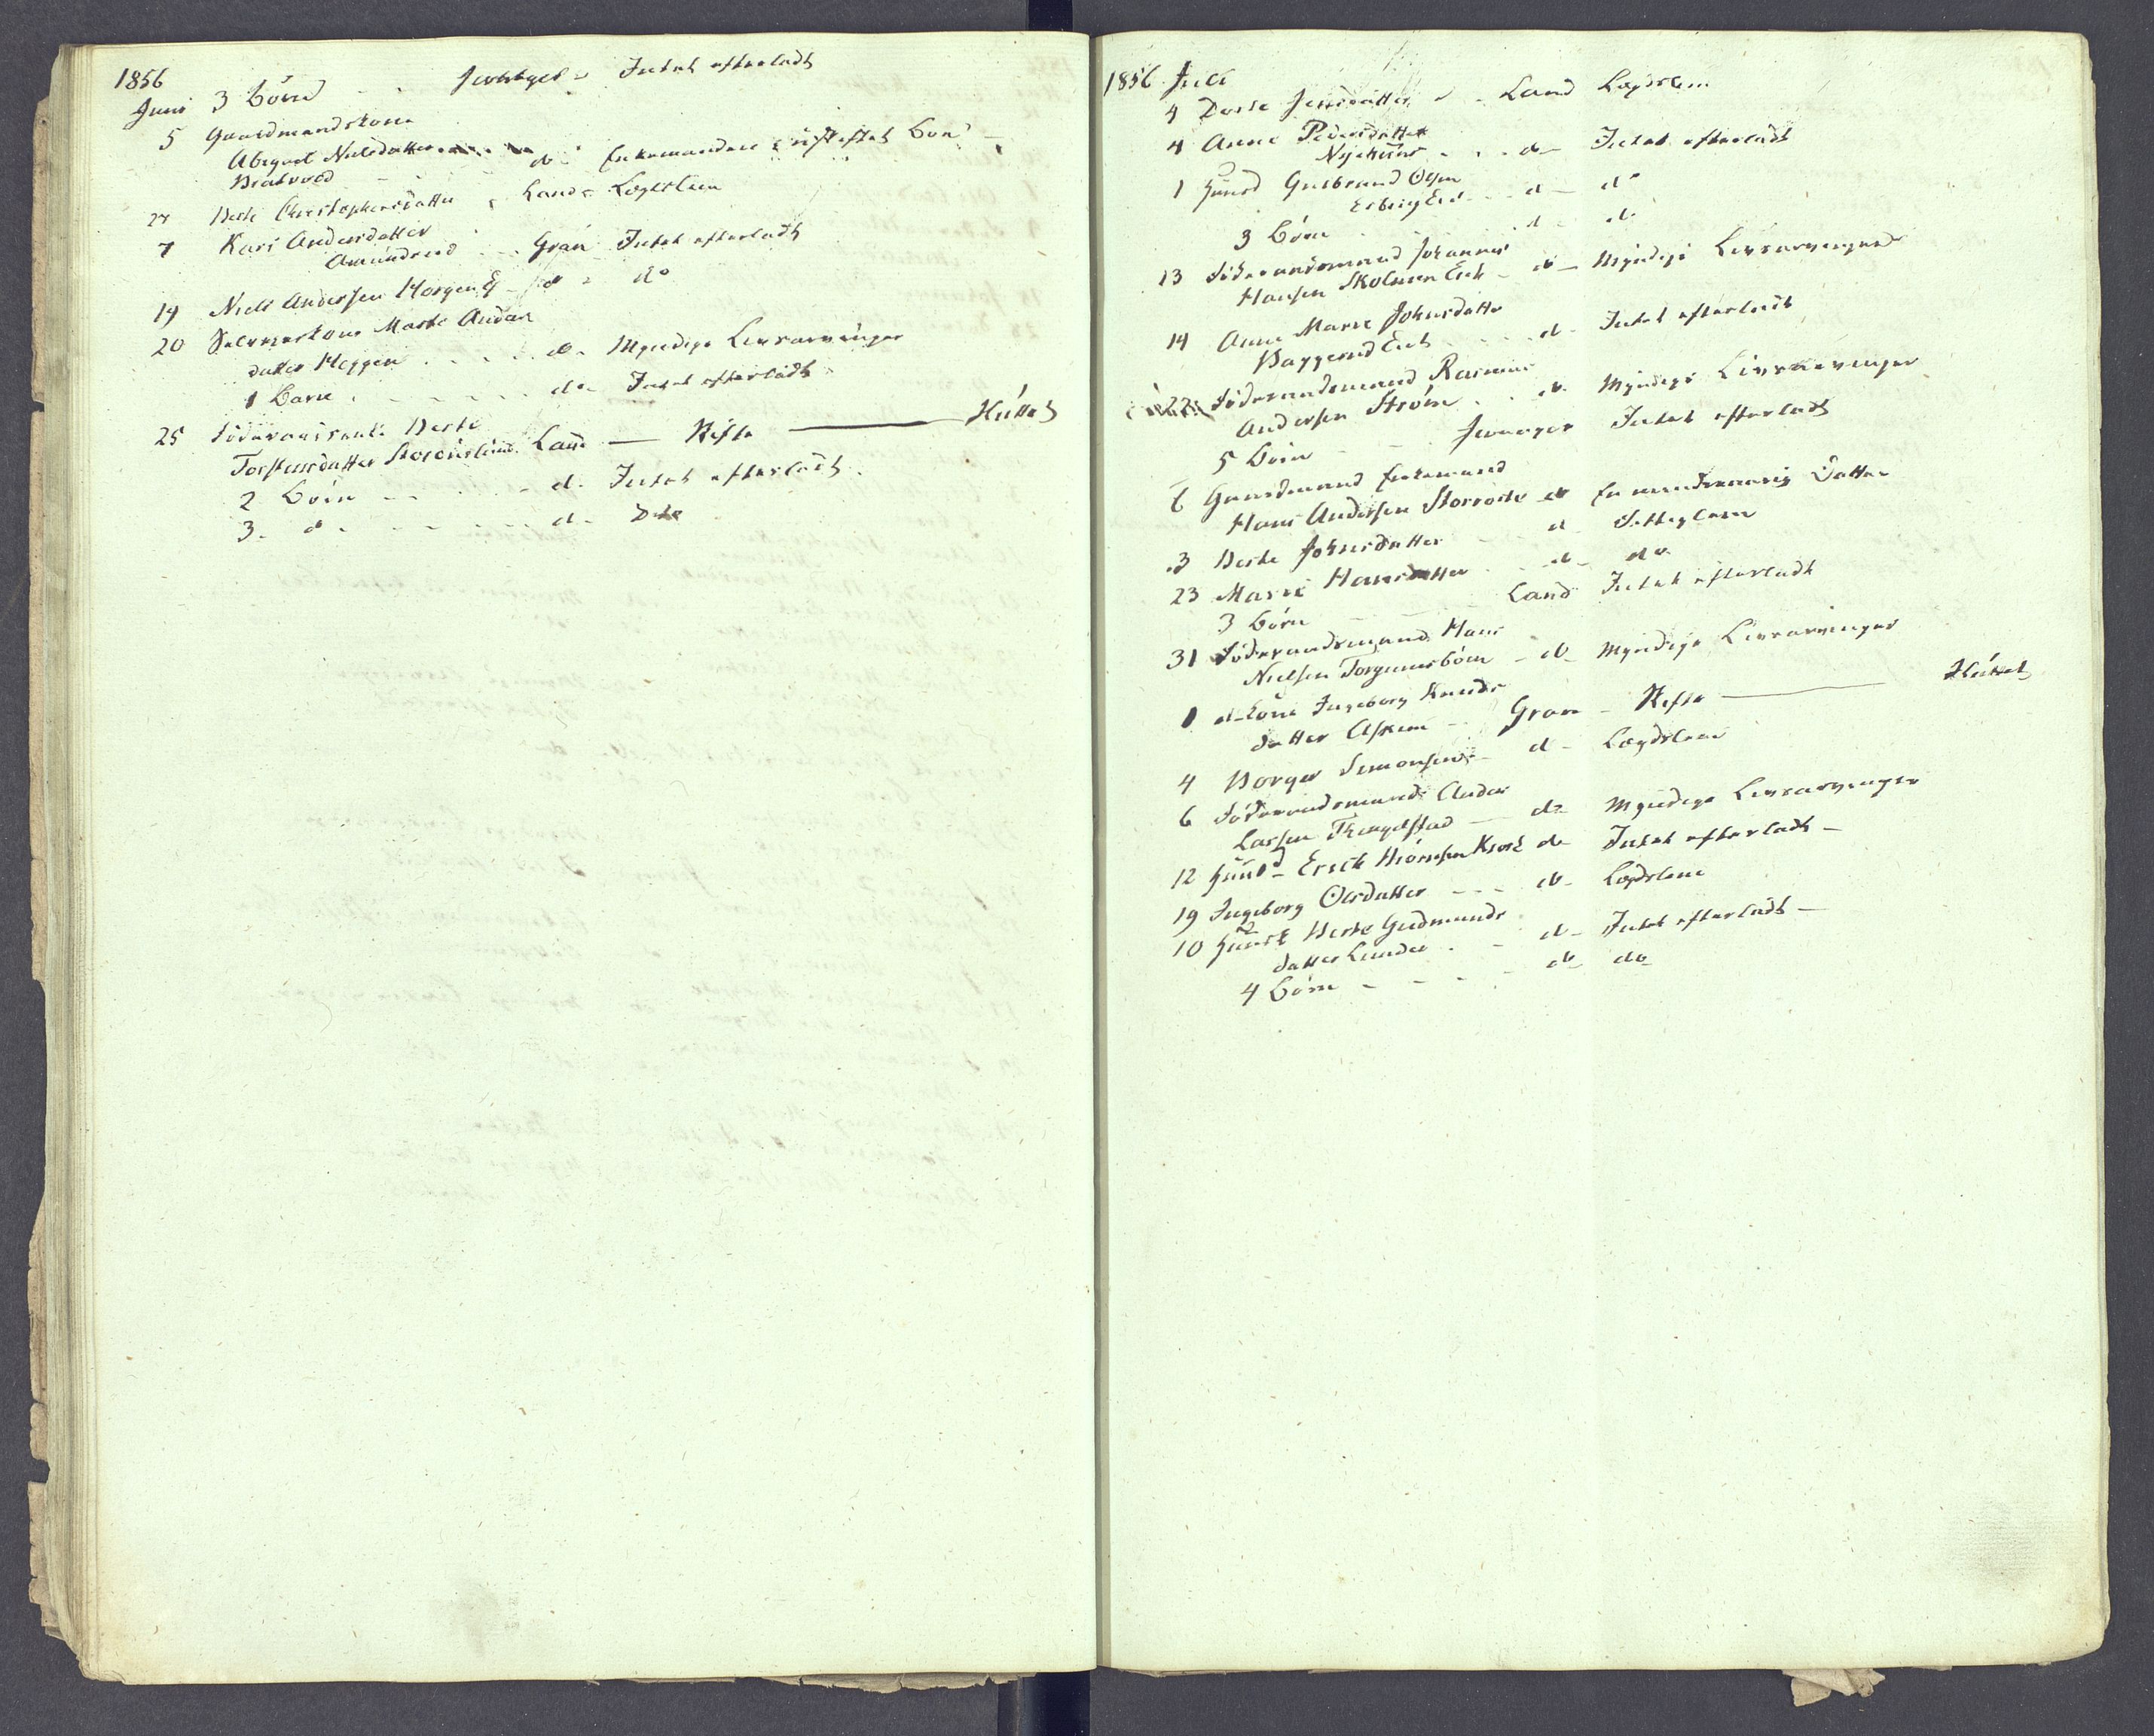 1856
Juni 3 Börn - - Jevnager - Intet efterladt
5 Gaardmandskone
Abigael Nielsdatter
Bratvold - do - Enkemanden & uskiftet Boe
27 Berte Christophersdatter , Land - Lægdslem
7 Kari Andersdatter
Amundrud - - Gran Intet efterladt
19 Niels Andersen Horgen E - do - do
20 Selveierkone Marte Anders
datter Heggen . . . . do - Myndige Livsarvinger
1 Barn . - - - - do - Intet efterladt
25 Föderaadsenke Berte
Torstensdatter Land — Skifte — Sluttet
2 Börn - - - - d. Intet efterladt.
3. d - - - - d - Dito
1856 Juli
4 Dorte Jensdatter - - Land Lægdslem
4 Anne Pedersdatter
Nyehuus . . . d - Intet efterladt
1 Huusmd Gulbrand Olsen
Eid - - - d - do
3 Börn - d - d.
13 Föderaadsmand Johannes
Hansen Skolmen Eich - do - Myndige Livsarvinger
14 Anne Marie Johnsdatter
Baggerud Eich . . . . d - Intet efterladt
22 Föderaadsmand Rasmus
Andersen Ström . . do Myndige Livsarvinger
5 Börn - - Jevnager Intet efterladt
6 Gaardmand Enkemand
Hans Andersen do En mindreaarig Datter
3 Berte Johnsdatter - - d - Fattiglem
23 Marie Hansdatter . . d - do
3 Börn - - Land Intet efterladt
31 Föderaadsmand Hans
Nielsen - do - Myndige Livsarvinger
1 do Kone Ingeborg Knuds
datter Askim - - Gran - Skifte — Sluttet
4 Borger Simonsen - d - Lægdslem
6 Föderaadsmand Anders
Larsen Thingelstad - do Myndige Livsarvinger
12 Huusmd - Erich do Intet efterladt -
19 Ingeborg Olsdatter - - - do - Lægdslem
10 Huusmk Berte Gudmunds
datter Lunder . - d - Intet efterladt -
4 Börn - - - - do do